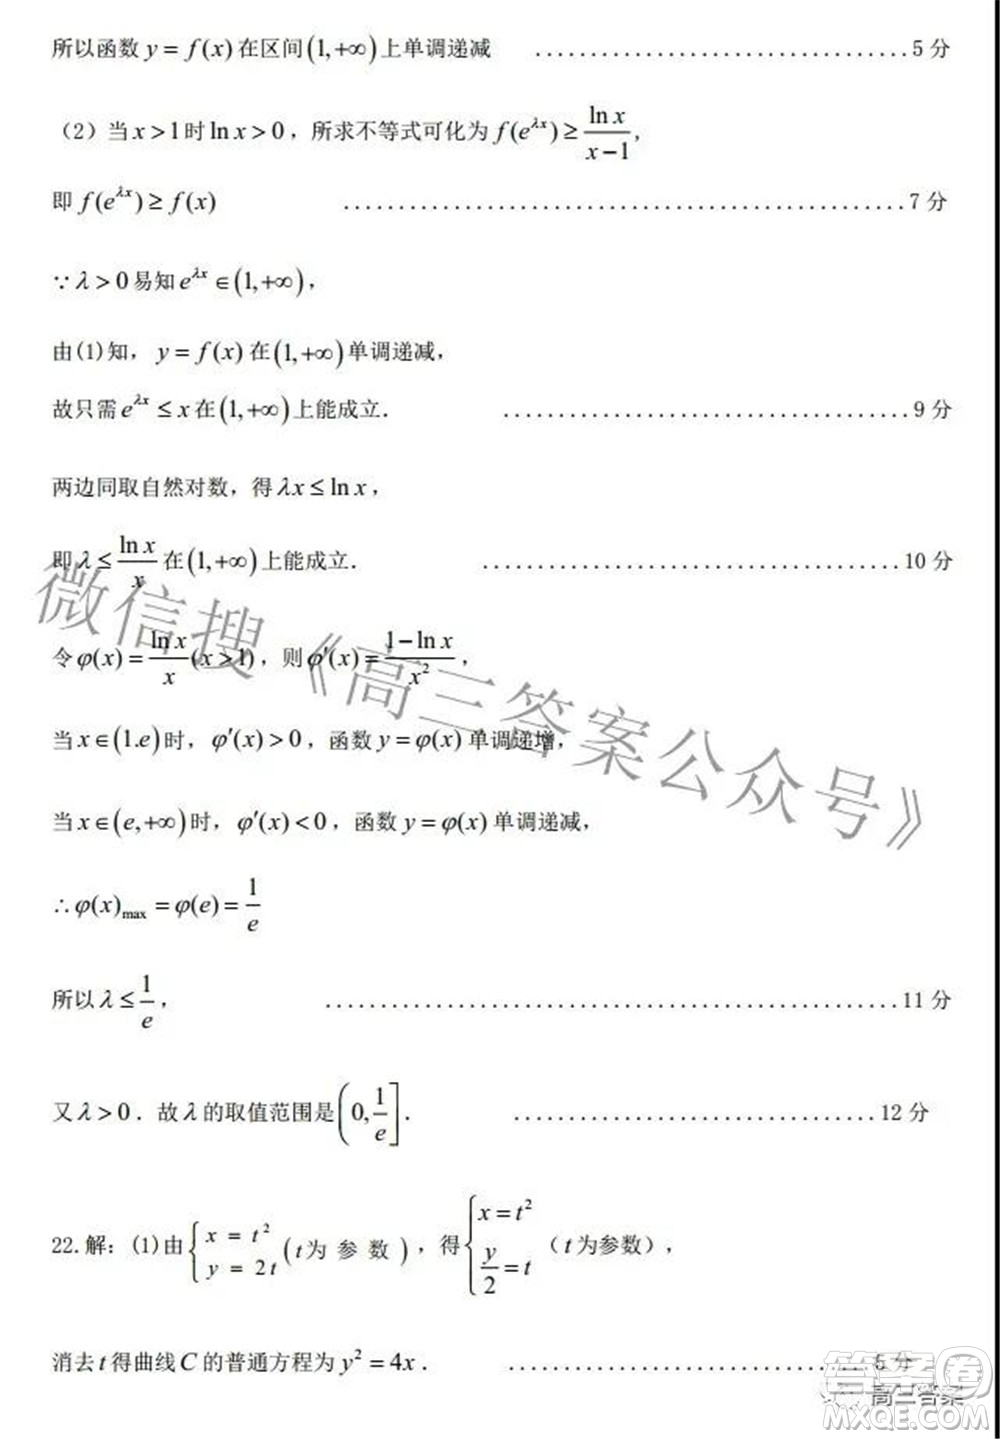 所以函数 y = f(x) 在区间 (1,+∞) 上单调递减 ............................5 分
（2）当 x > 1 时 ln x > 0 ，所求不等式可化为 f(e^{λx}) ≥ \frac{ln x}{x−1}，
即 f(e^{λx}) ≥ f(x) ....................................................7 分
∵ λ > 0 易知 e^{λx} ∈ (1,+∞)，
由(1)知， y = f(x) 在 (1,+∞) 单调递减，
故只需 e^{λx} ≤ x 在 (1,+∞) 上能成立． .....................................9 分
两边同取自然对数，得 λx ≤ ln x ，
即 λ ≤ \frac{ln x}{x} 在 (1,+∞) 上能成立． .......................................10 分
令 φ(x) = \frac{ln x}{x} (x > 1)，则 φ′(x) = \frac{1−ln x}{x^2}，
当 x ∈ (1.e) 时， φ′(x) > 0 ，函数 y = φ(x) 单调递增，
当 x ∈ (e,+∞) 时， φ′(x) < 0 ，函数 y = φ(x) 单调递减，
∴ φ(x)_{max} = φ(e) = \frac{1}{e}
所以 λ ≤ \frac{1}{e}， .....................................................11 分
又 λ > 0 ．故 λ 的取值范围是 (0, \frac{1}{e}]． .................................12 分
22.解：(1)由 { x = t^2  y = 2t (t 为 参 数 )，得 { x = t^2  \frac{y}{2} = t （ t 为参数），
消去 t 得曲线 C 的普通方程为 y^2 = 4x ． .................................5 分
微信搜《高三答案公众号》
答案圈
高三答案
MXQE.COM